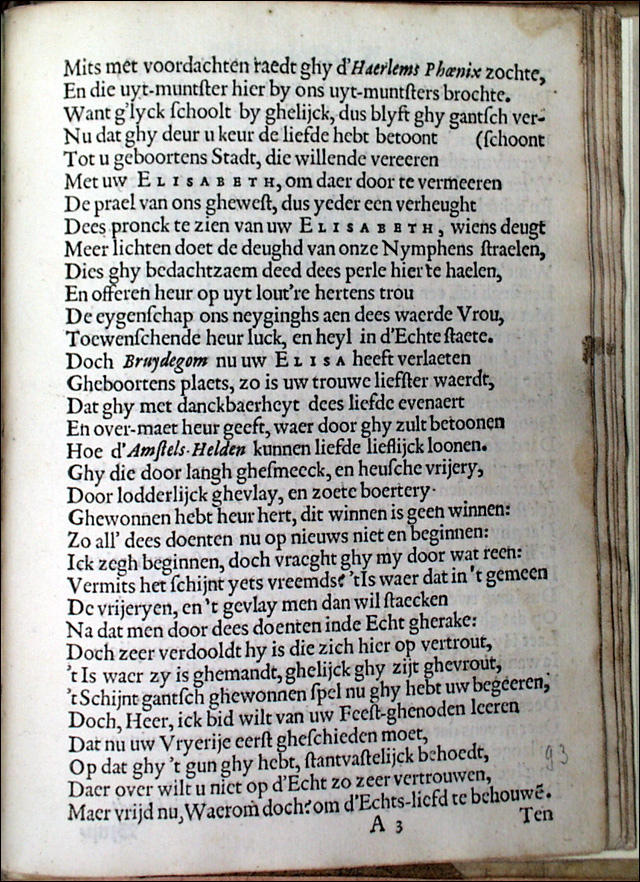 Mits met voordachten raedt ghy d'Haerlems Phœnix zochte,
En die uyt-muntſter hier by ons uyt-muntſters brochte.
Want g'lyck ſchoolt by ghelijck, dus blyft ghy gantſch ver-
Nu dat ghy deur u keur de liefde hebt betoont (ſchoont
Tot u geboortens Stadt, die willende vereeren
Met uw ELISABETH, om daer door te vermeeren
De prael van ons gheweſt, dus yeder een verheught
Dees pronck te zien van uw ELISABETH, wiens deugt
Meer lichten doet de deughd van onze Nymphens ſtraelen,
Dies ghy bedachtzaem deed dees perle hier te haelen,
En offeren heur op uyt lout're hertens trou
De eygenſchap ons neyginghs aen dees waerde Vrou,
Toewenſchende heur luck, en heyl in d'Echte ſtaete.
Doch Bruydegom nu uw ELISA heeft verlaeten
Gheboortens plaets, zo is uw trouwe liefſter waerdt,
Dat ghy met danckbaerheyt dees liefde evenaert
En over-maet heur geeft, waer door ghy zult betoonen
Hoe d'Amſtels-Helden kunnen liefde lieflijck loonen.
Ghy die door langh gheſmeeck, en heuſche vrijery,
Door lodderlijck ghevlay, en zoete boertery.
Ghewonnen hebt heur hert, dit winnen is geen winnen:
Zo all' dees doenten nu op nieuws niet en beginnen:
Ick zegh beginnen, doch vraeght ghy my door wat reen:
Vermits het ſchijnt yets vreemds? 'tIs waer dat in 't gemeen
De vrijeryen, en 't gevlay men dan wil ſtaecken
Na dat men door dees doenten inde Echt gherake:
Doch zeer verdooldt hy is die zich hier op vertrout,
't Is waer zy is ghemandt, ghelijck ghy zijt ghevrout,
't Schijnt gantſch ghewonnen ſpel nu ghy hebt uw begeeren,
Doch, Heer, ick bid wilt van uw Feeſt-ghenoden leeren
Dat nu uw Vryerije eerſt gheſchieden moet,
Op dat ghy 't gun ghy hebt, ſtantvaſtelijck behoedt,
Daer over wilt u niet op d'Echt zo zeer vertrouwen,
Maer vrijd nu, Waerom doch? om d'Echts-liefd te behouwē.
A 3 Ten
93